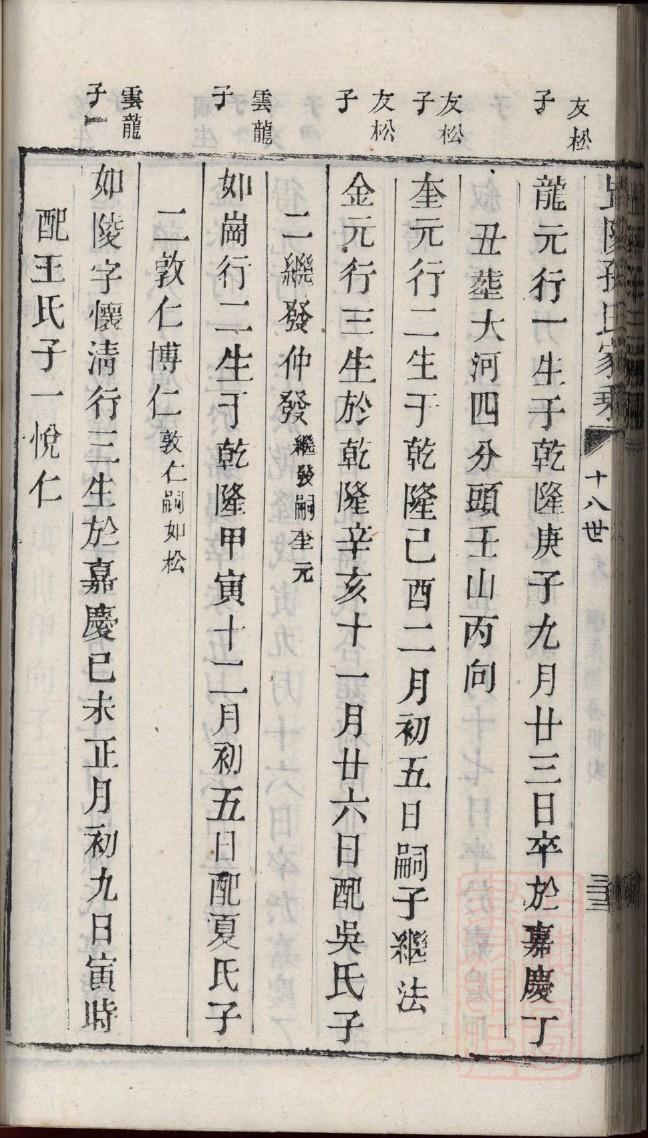 孫氏家乘
十八世
三三
友松
子
龍元行一生于乾隆庚子九月廿三日卒於嘉慶丁
丑塟大河四分頭壬山丙向
友松
子
奎元行二生于乾隆己酉二月初五日嗣子繼法
友松
子
金元行三生於乾隆辛亥十一月廿六日配吳氏子
二繼發仲發繼發嗣奎元
雲龍
子
如崗行二生于乾隆甲寅十二月初五日配夏氏子
二敦仁博仁敦仁嗣如松
雲龍
子一
如陵字懷清行三生於嘉慶己未正月初九日寅時
配王氏子一悅仁